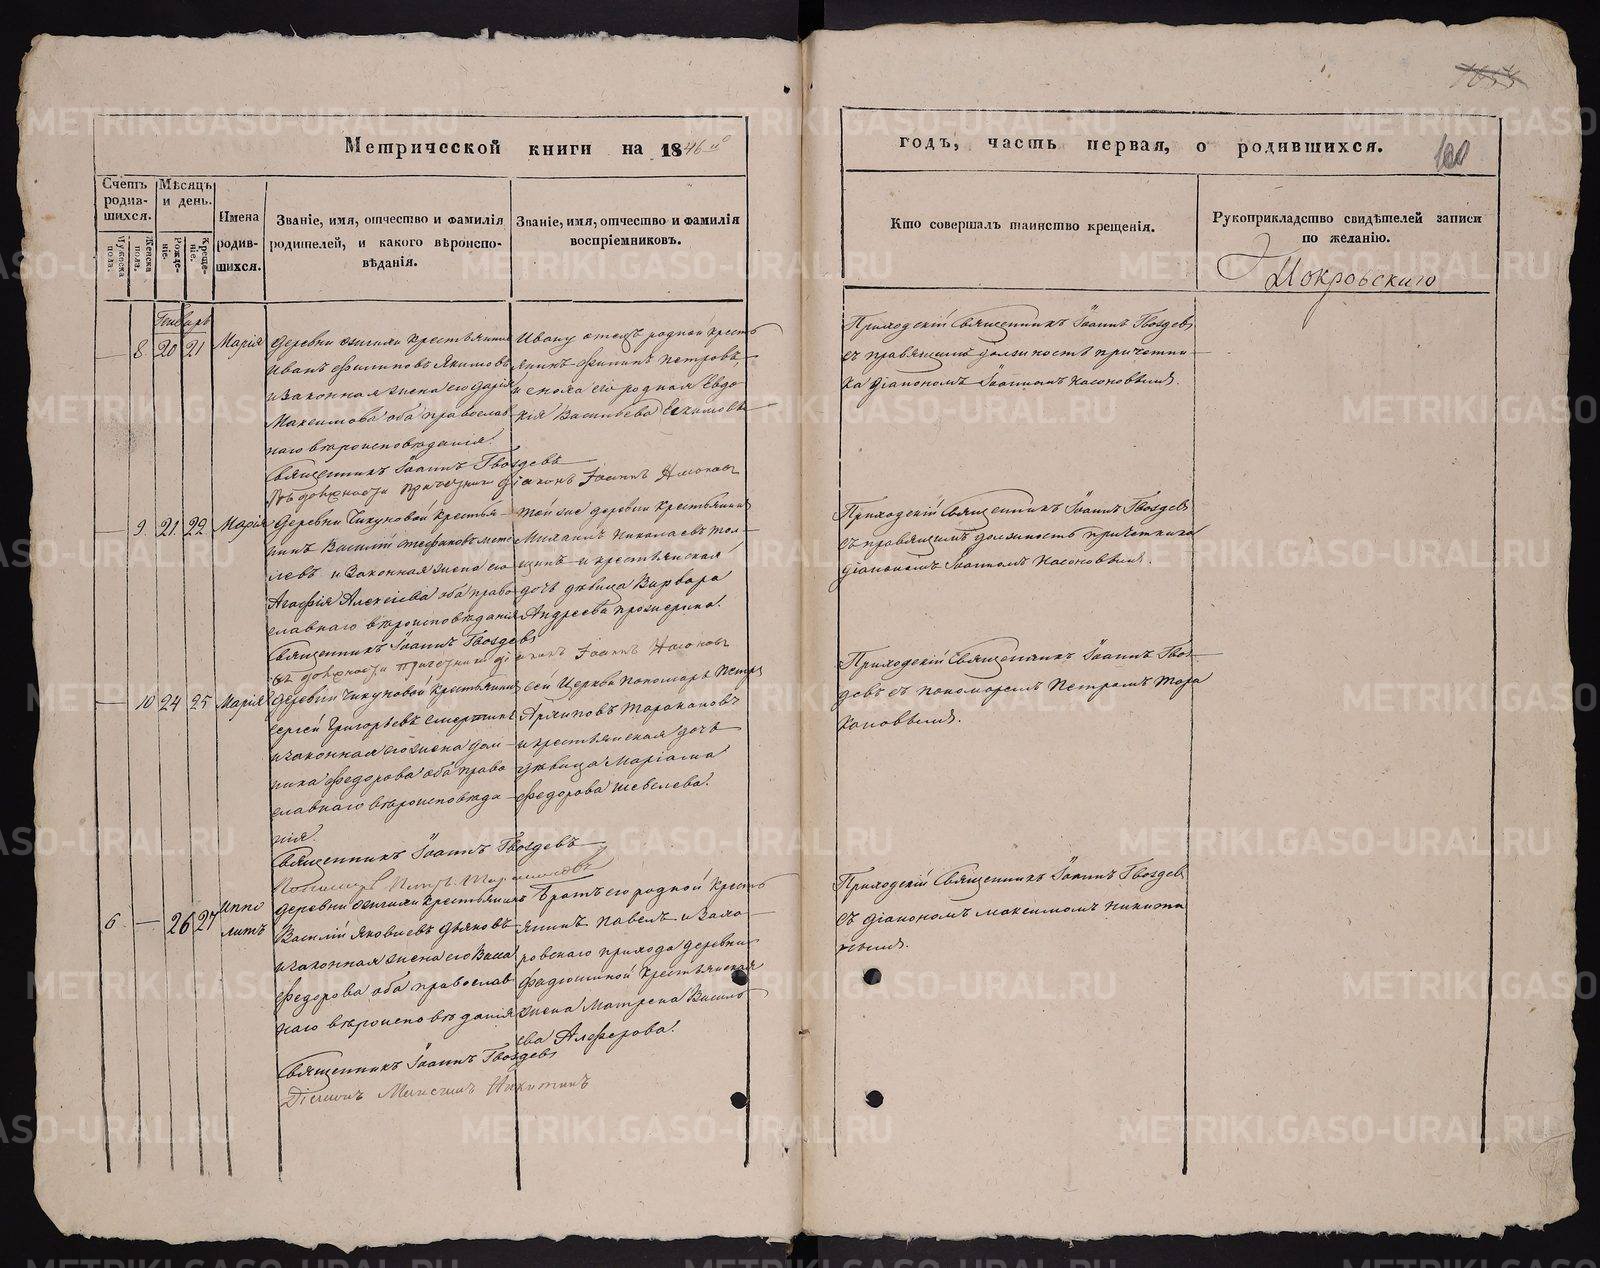 Метрической книги на 1846й
годъ, часть первая, о родившихся.
100
Счетъ родив-шихся.
Мужеска пола.
Женска пола.
Мѣсяцъ и день.
Рожде-ніе.
Креще-ніе.
Имена родив-шихся.
Званіе, имя, отчество и фамилія
родителей, и какого вѣроиспо-
вѣданія.
Званіе, имя, отчество и фамилія
воспріемниковъ.
Кто совершалъ таинство крещенія.
Рукоприкладство свидѣтелей записи
по желанію.
Покровскаго
Январь
8 20 21 Марія
Деревни крестьянинъ
Иванъ Филиповъ Якимовъ
и законная жена его Дарія
Максимова оба православ
наго вѣроисповѣданія.
Священникъ Іоаннъ Гвоздевъ
Въ должности причетника діаконъ Іоаннъ Насоновъ
Ивану отецъ родной крест
янинъ Филипъ Петровъ
и сноха его родная Евдо
кія Васильева Екимовы
Приходскій Священникъ Іоаннъ Гвоздевъ
съ правящимъ должность причетни
ка діакономъ Іоанномъ Насоновымъ.
9. 21. 22 Марія
Деревни Чикуновой крестья-
нинъ Василій Стефановъ
и законная жена его
Агафія Алексіева оба право
славнаго вѣроисповѣданія
Священникъ Іоаннъ Гвоздевъ
въ должности причетника діаконъ Іоаннъ Насоновъ
той же деревни крестьянинъ
Михаилъ Николаевъ
и крестьянская
дочь дѣвица Варвара
Андреева
Приходскій Священникъ Іоаннъ Гвоздевъ
съ правящимъ должность причетника
діакономъ Іоанномъ Насоновымъ.
10 24 25 Марія
Деревни Чикуновой крестьянинъ
Сергей Григорьевъ
и законная его жена Дом
ника Федорова оба право
славнаго вѣроисповѣда
нія.
Священникъ Іоаннъ Гвоздевъ
Пономарь Петръ Таракановъ
сей Церкви пономарь Петръ
Архиповъ Таракановъ
и крестьянская дочь
дѣвица Маріамна
Федорова Шевелева.
Приходскій Священникъ Іоаннъ Гвоз-
девъ съ пономаремъ Петромъ Тара
кановымъ.
6 — 26 27 Иппо
литъ
Деревни крестьянинъ
Василій Яковлевъ Дьяковъ
и законная жена его Васса
Федорова оба православ
наго вѣроисповѣданія
Священникъ Іоаннъ Гвоздевъ
Діаконъ Максимъ Никитинъ
Братъ его родной крест
янинъ Павелъ и
прихода деревни
Фадюшиной крестьянская
жена Матрена Василь
ева Алферова.
Приходскій Священникъ Іоаннъ Гвоздевъ
съ діакономъ Максимомъ Никити
нымъ.
METRIKI.GASO-URAL.RU